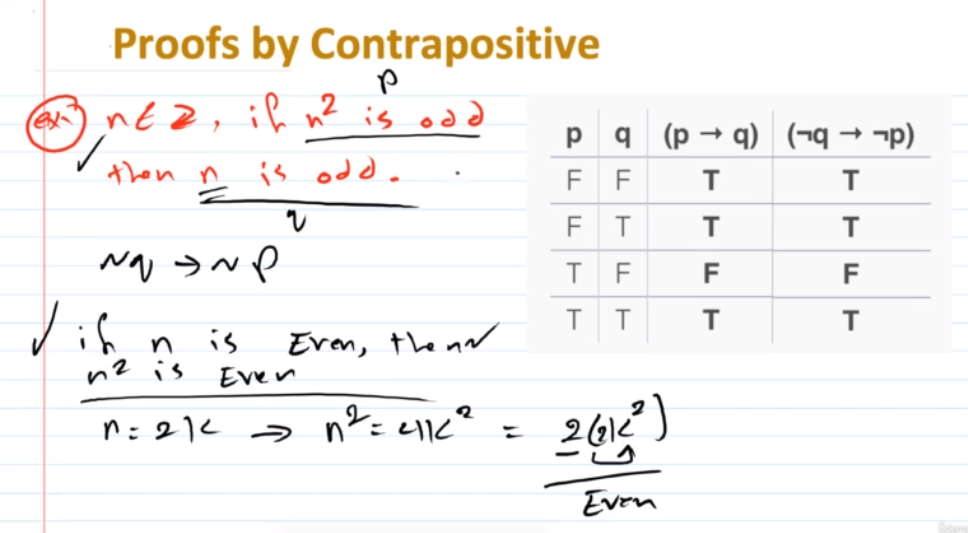 Proofs by Contrapositive
p
ex: n ∈ Z, if n² is odd
then n is odd.
q
~q → ~p
if n is Even, then
n² is Even
n = 2k → n² = 4k² = 2(2k²)
Even
p q (p → q) (¬q → ¬p)
F F T T
F T T T
T F F F
T T T T